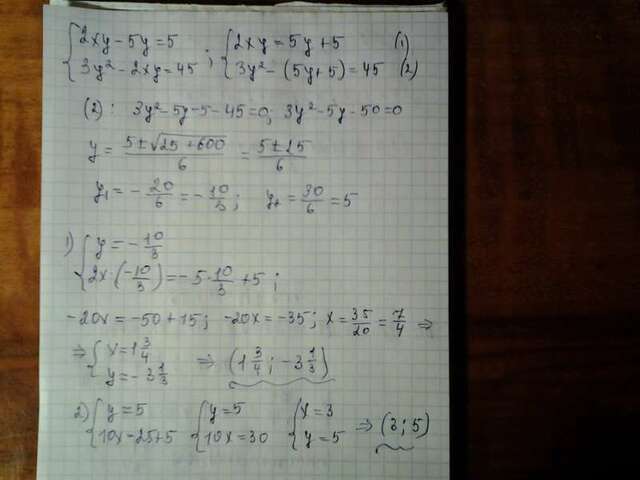 {2xy-5y=5 ; {2xy=5y+5 (1)
{3y²-2xy=45 {3y²-(5y+5)=45 (2)
(2): 3y²-5y-5-45=0; 3y²-5y-50=0
y = (5±√(25+600))/6 = (5±25)/6
y₁ = -20/6 = -10/3; y₂ = 30/6 = 5
1) {y = -10/3
{2x·(-10/3) = -5·10/3 + 5;
-20x = -50+15; -20x = -35; x = 35/20 = 7/4 ⇒
⇒ {x = 1 3/4 ⇒ (1 3/4; -3 1/3)
{y = -3 1/3
2) {y=5 {y=5 {x=3 ⇒ (3; 5)
{10x=25+5 {10x=30 {y=5